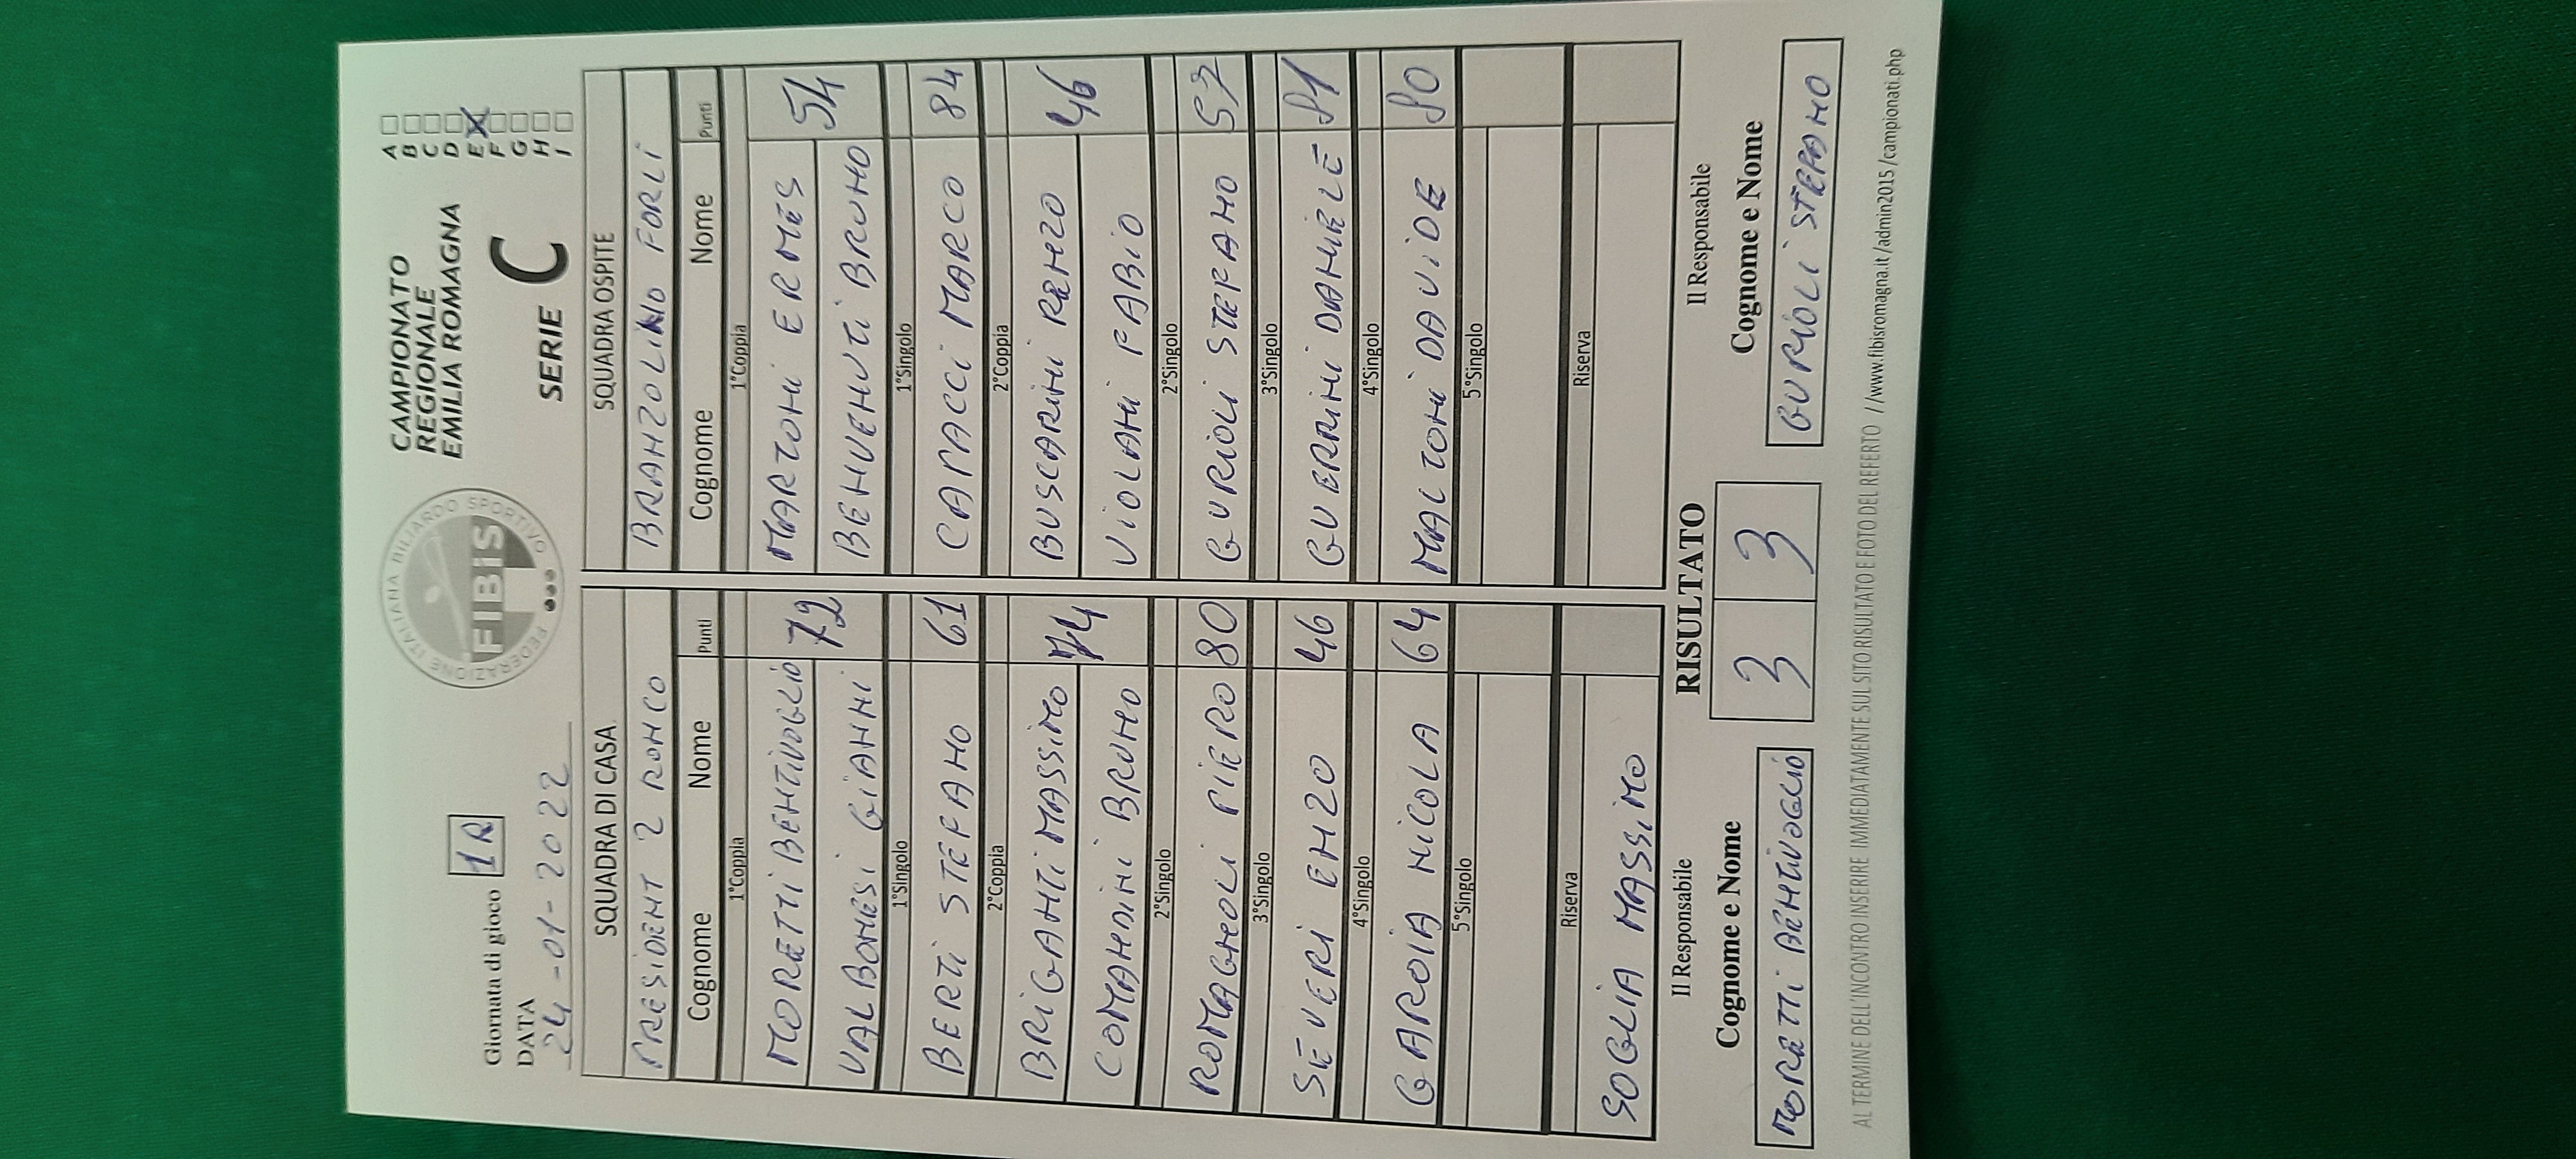 Giornata di gioco 1R
DATA
24-01-2022
FEDERAZIONE ITALIANA BILIARDO SPORTIVO
FIBiS
CAMPIONATO
REGIONALE
EMILIA ROMAGNA
SERIE C
A
B
C
D
E X
F
G
H
I
SQUADRA DI CASA SQUADRA OSPITE
PRESIDENT 2 RONCO BRANZOLINO FORLI
Cognome Nome Punti Cognome Nome Punti
1°Coppia 1°Coppia
MORETTI BENTIVOGLIO 72 MARZONI ERMES 54
VALBONESI GIANNI BENVENUTI BRUNO
1°Singolo 1°Singolo
BERTI STEFANO 61 CAPACCI MARCO 84
2°Coppia 2°Coppia
BRIGANTI MASSIMO 74 BUSCARINI RENZO 46
COMANDINI BRUNO VIOLANI FABIO
2°Singolo 2°Singolo
ROMAGNOLI PIERO 80 GURIOLI STEFANO 53
3°Singolo 3°Singolo
SEVERI ENZO 46 GUERRINI DANIELE 81
4°Singolo 4°Singolo
GAROIA NICOLA 64 MALTONI DAVIDE 80
5°Singolo 5°Singolo
Riserva Riserva
SOGLIA MASSIMO
Il Responsabile RISULTATO Il Responsabile
Cognome e Nome 3 3 Cognome e Nome
MORETTI BENTIVOGLIO GURIOLI STEFANO
AL TERMINE DELL'INCONTRO INSERIRE IMMEDIATAMENTE SUL SITO RISULTATO E FOTO DEL REFERTO //www.fibisromagna.it/admin2015/campionati.php